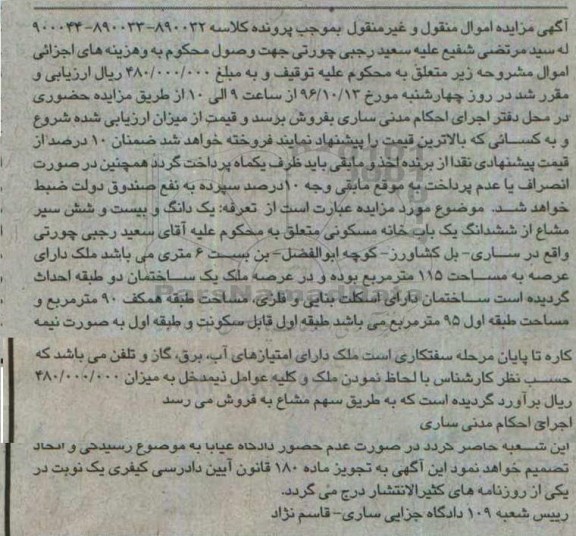 آگهی مزایده اموال منقول و غیرمنقول بموجب پرونده کلاسه ۸۹۰۰۳۲-۸۹۰۰۳۳-۹۰۰۰۴۴
له سید مرتضی شفیع علیه سعید رجبی چورتی جهت وصول محکوم به وهزینه های اجرائی
اموال مشروحه زیر متعلق به محکوم علیه توقیف و به مبلغ ۴۸۰/۰۰۰/۰۰۰ ریال ارزیابی و
مقرر شد در روز چهارشنبه مورخ ۹۶/۱۰/۱۳ از ساعت ۹ الی ۱۰ از طریق مزایده حضوری
در محل دفتر اجرای احکام مدنی ساری بفروش برسد و قیمت از میزان ارزیابی شده شروع
و به کسانی که بالاترین قیمت را پیشنهاد نمایند فروخته خواهد شد ضمنان ۱۰ درصد از
قیمت پیشنهادی نقدا از برنده اخذ و مابقی باید ظرف یکماه پرداخت گردد همچنین در صورت
انصراف یا عدم پرداخت به موقع مابقی وجه ۱۰درصد سپرده به نفع صندوق دولت ضبط
خواهد شد. موضوع مورد مزایده عبارت است از تعرفه: یک دانگ و بیست و شش سیر
مشاع از ششدانگ یک باب خانه مسکونی متعلق به محکوم علیه آقای سعید رجبی چورتی
واقع در ساری- بل کشاورز- کوچه ابوالفضل- بن بست ۶ متری می باشد ملک دارای
عرصه به مساحت ۱۱۵ مترمربع بوده و در عرصه ملک یک ساختمان دو طبقه احداث
گردیده است ساختمان دارای اسکلت بنایی و فلزی، مساحت طبقه همکف ۹۰ مترمربع و
مساحت طبقه اول ۹۵ مترمربع می باشد طبقه اول قابل سکونت و طبقه اول به صورت نیمه
کاره تا پایان مرحله سفتکاری است ملک دارای امتیازهای آب، برق، گاز و تلفن می باشد که
حسب نظر کارشناس با لحاظ نمودن ملک و کلیه عوامل ذیمدخل به میزان ۴۸۰/۰۰۰/۰۰۰
ریال برآورد گردیده است که به طریق سهم مشاع به فروش می رسد
اجرای احکام مدنی ساری
این شعبه حاضر گردد در صورت عدم حضور دادگاه غیابا به موضوع رسیدگی و اتخاذ
تصمیم خواهد نمود این آگهی به تجویز ماده ۱۸۰ قانون آیین دادرسی کیفری یک نوبت در
یکی از روزنامه های کثیرالانتشار درج می گردد.
رییس شعبه ۱۰۹ دادگاه جزایی ساری- قاسم نژاد